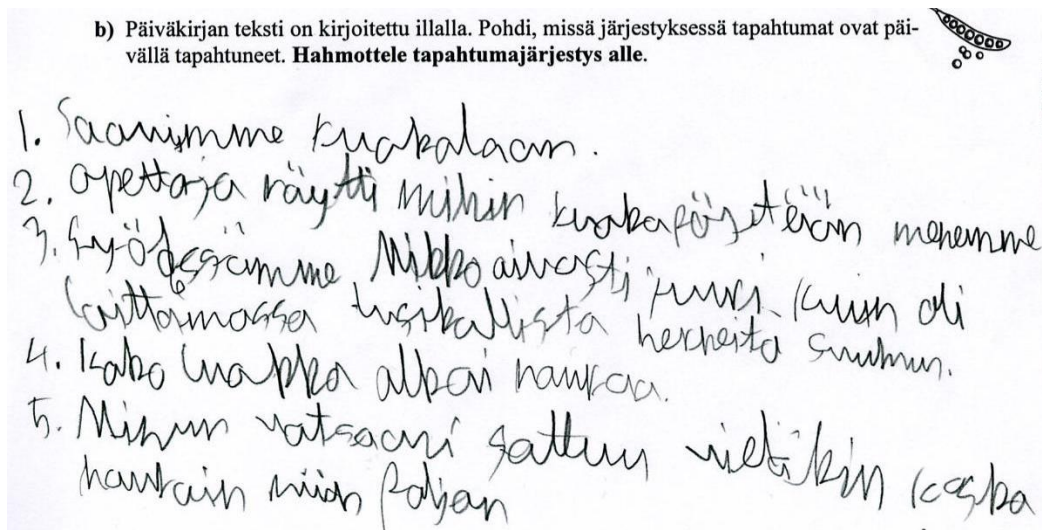 b) Päiväkirjan teksti on kirjoitettu illalla. Pohdi, missä järjestyksessä tapahtumat ovat päi-
vällä tapahtuneet. Hahmottele tapahtumajärjestys alle.
1. Saavuimme ruokalaan.
2. opettaja näytti mihin ruokapöytään menemme
3. Syödessämme Mikko aivasti juuri kuin oli
laittamassa lusikallista herneitä suuhun.
4. Koko luokka alkoi nauraa.
5. Minun vatsaani sattuu vieläkin koska
nauroin niin paljon